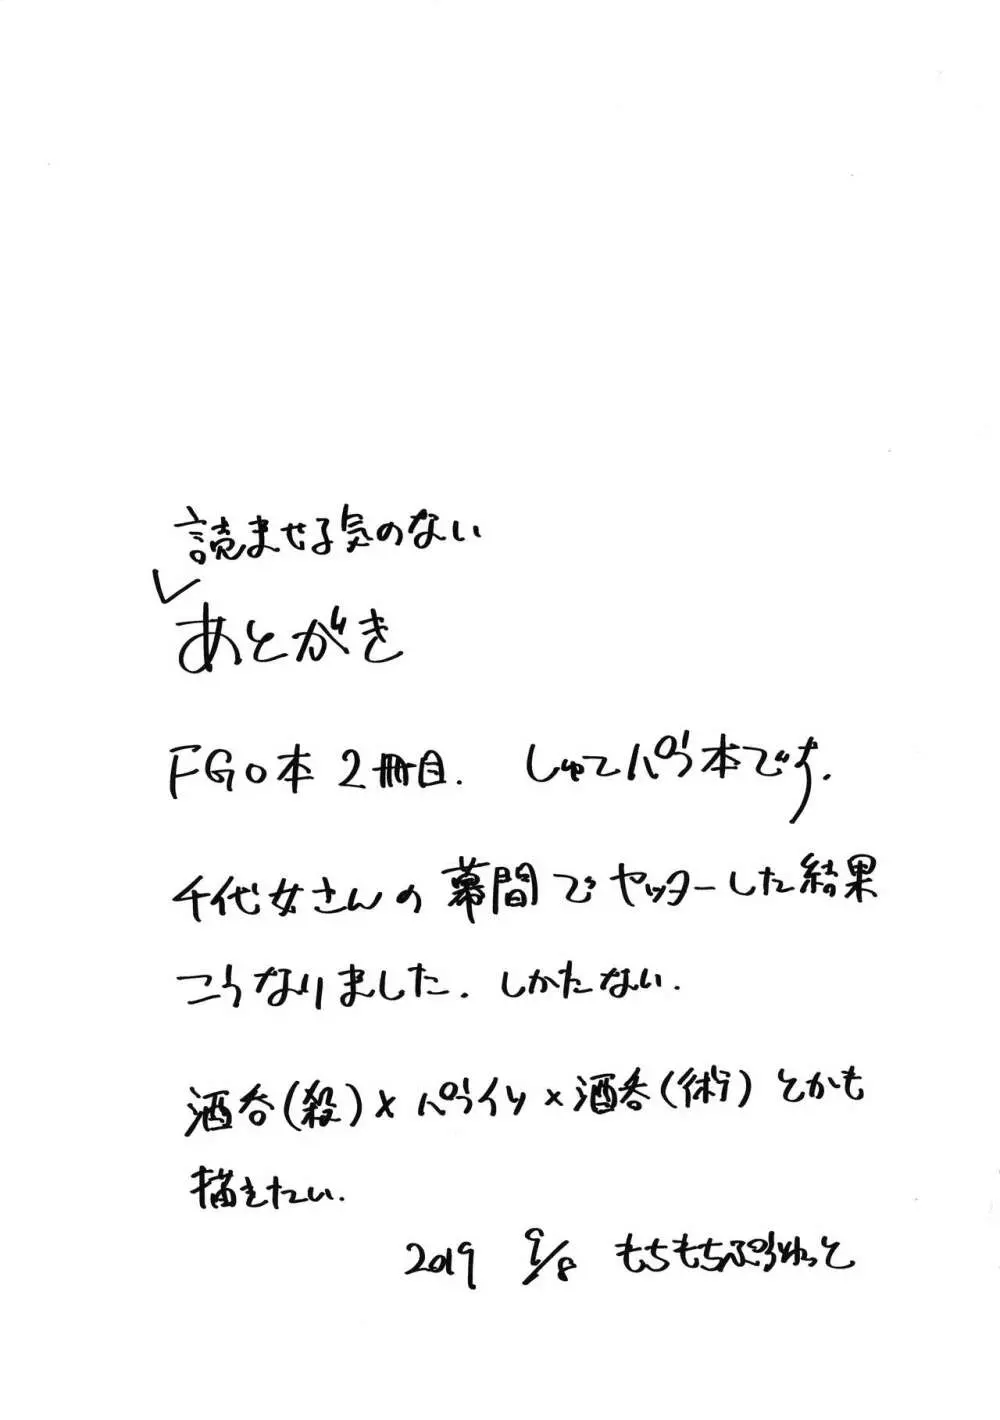 読ませる気のない
あとがき
FGO本2冊目. しゅてパラ本です.
千代女さんの幕間でヤッターした結果
こうなりました. しかたない.
酒呑(殺)×パライソ×酒呑(術)とかも
描きたい.
2019 9/8 もちもちぷうれっと